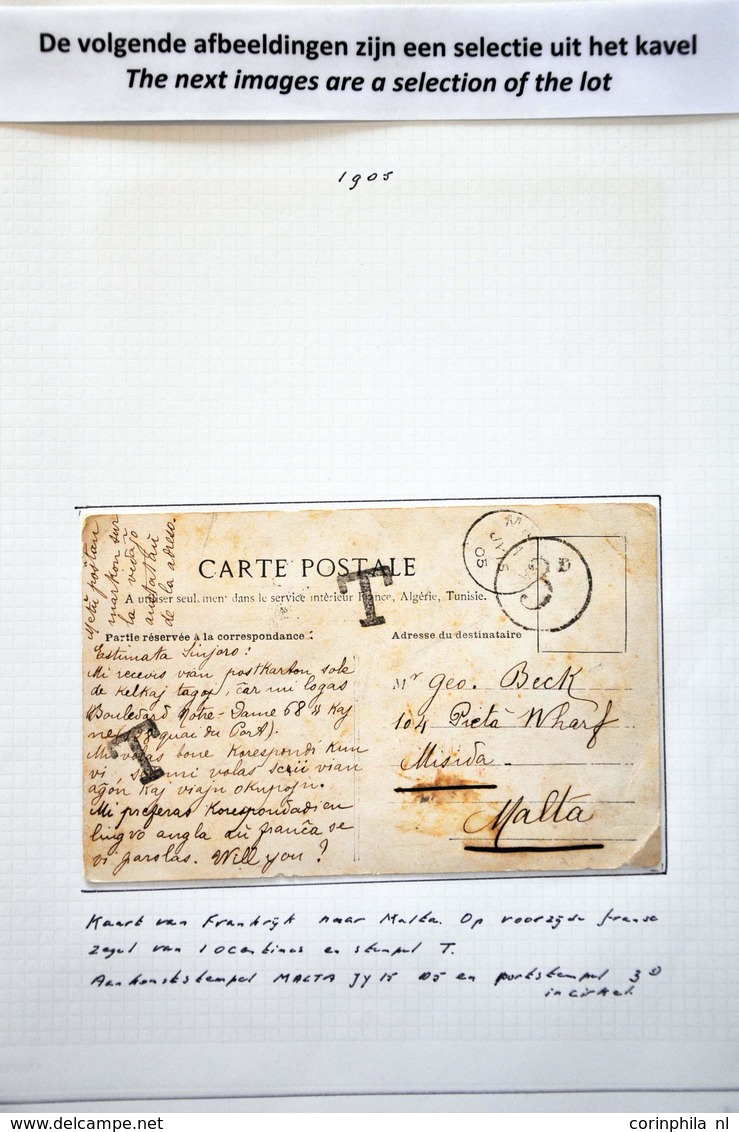 De volgende afbeeldingen zijn een selectie uit het kavel
The next images are a selection of the lot
1905
Metu poŝtan
markon sur
la vidaĵo
anstataŭ
de la adreso.
CARTE POSTALE
A utiliser seulement dans le service intérieur France, Algérie, Tunisie.
Partie réservée à la correspondance :
Adresse du destinataire
T
T
MALTA
JY 15
05
3D
Estimata Sinjoro!
Mi recevis vian postkarton sole
de kelkaj tagoj, ĉar mi logas
Boulevard Notre-Dame 68 kaj
ne 28 quai du Port).
Mi volas bone korespondi kun
vi, sed mi volas scii vian
aĝon kaj viajn okupojn.
Mi preferas korespondadi en
lingvo angla aŭ franĉa se
vi parolas. Will you ?
Mr Geo. Beck
104 Pietà Wharf
Misida
Malta
Kaart van Frankrijk naar Malta. Op voorzijde franse
zegel van 10 centimes en stempel T.
Aankomststempel MALTA JY 15 05 en portstempel 3D
in cirkel.
© delcampe.net
corinphila nl